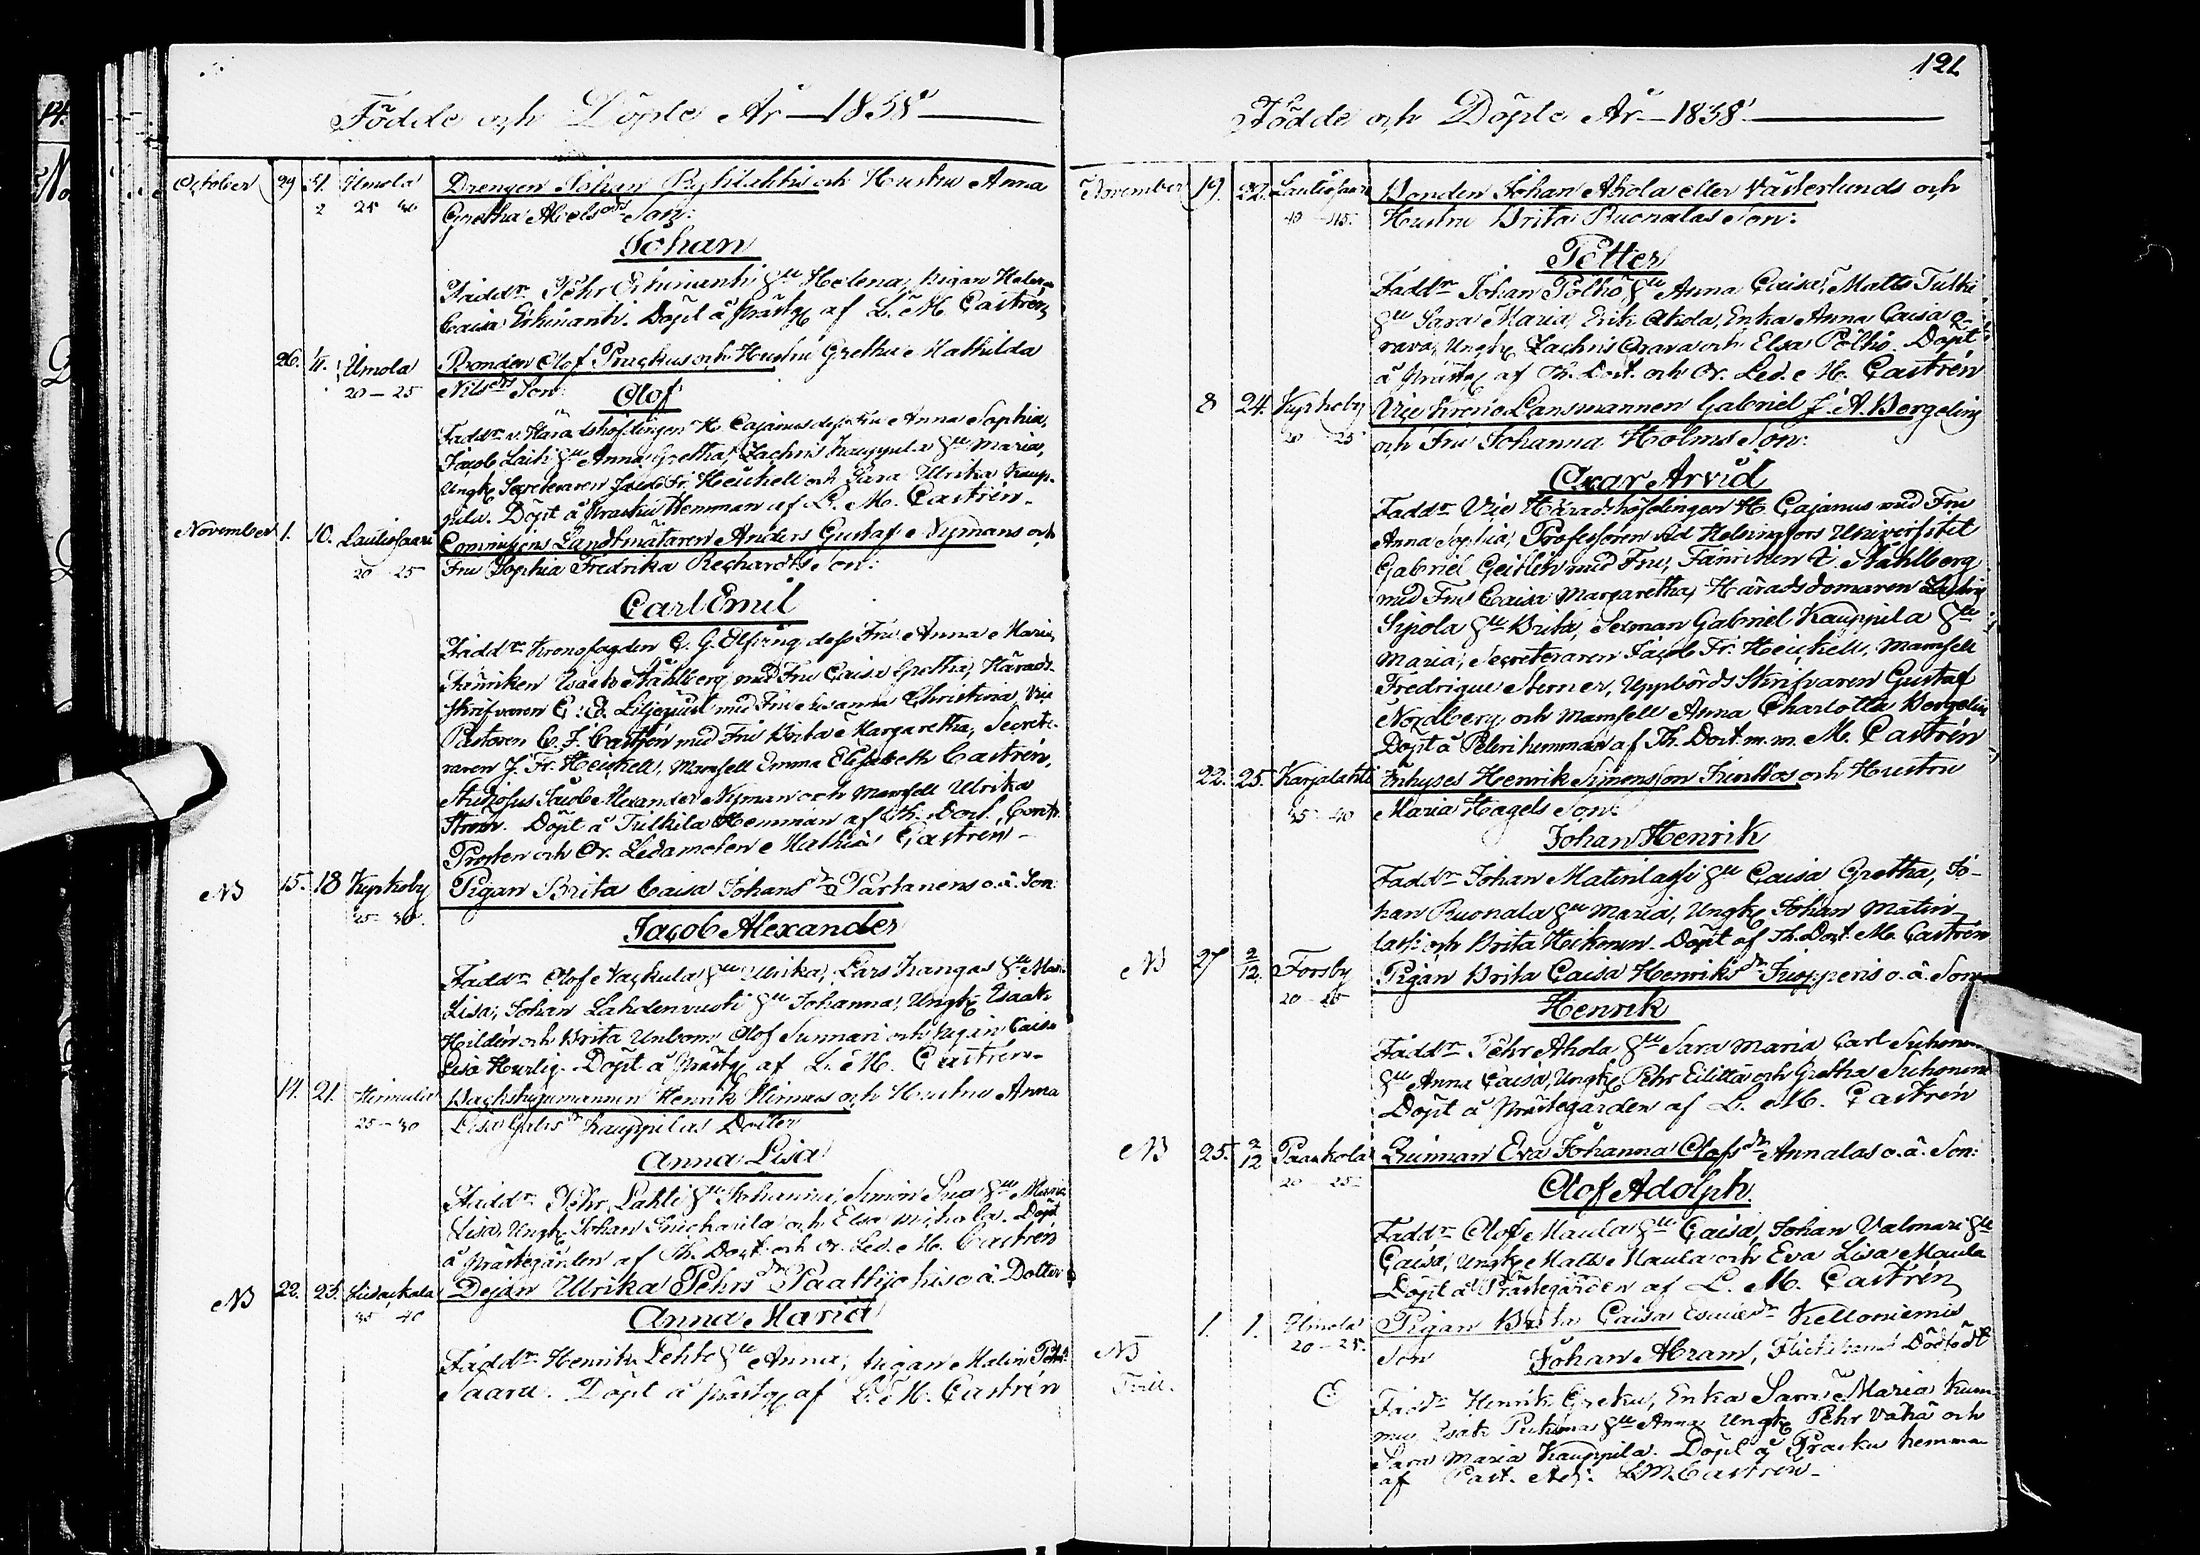 Födde och Döpte År 1838
October 29 31. Umola Drengen Johan Rytilahtis och Hustru Anna
2 25 30 Gretha Abels dr Son:
Johan
Fadd:r Pehr Erkinantti hu Helena, Pigan Helena
Caisa Erkinantti. Döpt å Prästg. af L. M. Castrén
26. 4. Umola Bonden Olof Prackus och Hustru Gretha Mathilda
20 - 25 Nils dr Son: Olof
Fadd:r v. Häradshöfdingen H. Cajanus dess Fru Anna Sophia,
Jacob Laiti hu Anna Gretha, Zachris Kauppila hu Maria,
Ungk. Secreteraren Jacob Fr. Heickell och Sara Ulrika Kaup-
pila. Döpt å Pracku Hemman af L. M. Castrén.
November 1. 10. Lautiosaari Commissions Landtmätaren Anders Gustaf Nymans och
20 - 25 Fru Sophia Fredrika Rechardts Son:
Carl Emil
Fadd:r Kronofogden C. G. Elfving dess Fru Anna Maria,
Fänriken Isaac Ståhlberg med Fru Caisa Gretha, Härads-
Skrifvaren C. E. Liljequist med Fru Susanna Christina, Vice
Pastoren C. J. Castrén med Fru Brita Margaretha, Secrete-
raren J. Fr. Heickell, Mamsell Emma Elisabeth Castrén,
Studiosus Jacob Alexander Nyman och Mamsell Ulrika
Ström. Döpt å Tulkila Hemman af Th. Doct. Contr.
Prosten och Or. Ledamoten Mathias Castrén
NB 15. 18 Kyrkoby Pigan Brita Caisa Johans dr Partanens o.ä. Son:
25 30. Jacob Alexander
Fadd:r Olof Vackula hu Ulrika, Lars Kangas hu Maria
Lisa, Johan Lahdenrusti hu Johanna, Ungk. Isaac
Hildén och Brita Unbom, Olof Sunnari och Pigan Caisa
Lisa Hurtig. Döpt å Prästg. af L. M. Castrén
14. 21. Hirmula Backstugumannen Henrik Hirmus och Hustru Anna
25 - 30 Lisa Gabrs dr Kauppilas Dotter
Anna Lisa
Fadd:r Pehr Lahti hu Johanna, Simon Sua hu Maria
Lisa, Ungk. Johan Knickarila och Elsa Mikala. Döpt
å Prästegården af Th. Doct. och Or. Led. M. Castrén
NB 22. 23. Liedakkala Dejan Ulrika Pehrs dr Paattijokis o.ä Dotter
35 40 Anna Maria
Fadd:r Henrik Lehto hu Anna, Pigan Malin
Saaru. Döpt å Prästg. af L. M. Castrén
121.
Födde och Döpte År 1838.
November 19. 22. Lautiosaari Bonden Johan Ahola eller Västerlunds och
40 - 45. Hustru Brita Ruonalas Son:
Petter
Fadd:r Johan Pölhö hu Anna Caisa, Matts Tulki
hu Sara Maria, Erik Ahola, Enka Anna Caisa O-
rava, Ungk. Zachris Orava och Elsa Pölhö. Döpt
å Prästg. af Th. Doct. och Or. Led. M. Castrén
8 24. Kyrkoby Vice Krono Länsmannen Gabriel J. A. Bergelins
20 25 och Fru Johanna Holms Son:
Oscar Arvid
Fadd:r Vice Häradshöfdingen H. Cajanus med Fru
Anna Sophia, Professoren vid Helsingfors Universitet
Gabriel Geitlin med Fru, Fänriken I. Ståhlberg
med Fru Caisa Margaretha, Häradsdomaren Zachris
Sipola hu Brita, Sexman Gabriel Kauppila hu
Maria, Secreteraren Jacob Fr. Heickell, Mamsell
Fredrique Aerner, Uppbörds Skrifvaren Gustaf
Nordberg och Mamsell Anna Charlotta Bergelin
Döpt å Peteri hemman af Th. Doct. m.m. M. Castrén
22. 25. Karjalahti Inhyses Henrik Simensson Kinkos och Hustru
35 40 Maria Hagels Son:
Johan Henrik
Fadd:r Johan Matinlassi hu Caisa Gretha, Jo-
han Ruonala hu Maria, Ungk. Johan Matin-
lassi och Brita Heikonen. Döpt af Th. Doct. M. Castrén
NB 27 2/12 Forsby Pigan Brita Caisa Henriks dr Juopperis o.ä. Son
20 25 Henrik
Fadd:r Pehr Ahola hu Sara Maria Carl Suhonen
hu Anna Caisa, Ungk. Pehr Eilittä och Gretha Suhonen
Döpt å Prästegården af L. M. Castrén
NB 25. 2/12 Paakkola Quinnan Eva Johanna Olofs dr Annalas o.ä. Son:
20 25 Olof Adolph.
Fadd:r Olof Maula hu Caisa, Johan Valmari hu
Caisa, Ungk. Matts Maula och Eva Lisa Maula
Döpt å Prästegården af L. M. Castrén
1. 1. Umola Pigan Brita Caisa Esaie dr Kelloniemis
NB 20 - 25. Son Johan Abram, Dödfödt
Fadd:r Henrik Greku, Enka Sara Maria Kum-
mu, Isak hu Anna Ungk. Pehr Vähä och
Sara Maria Kauppila. Döpt å Pracku hemman
af Past. Adj. L M Castrén